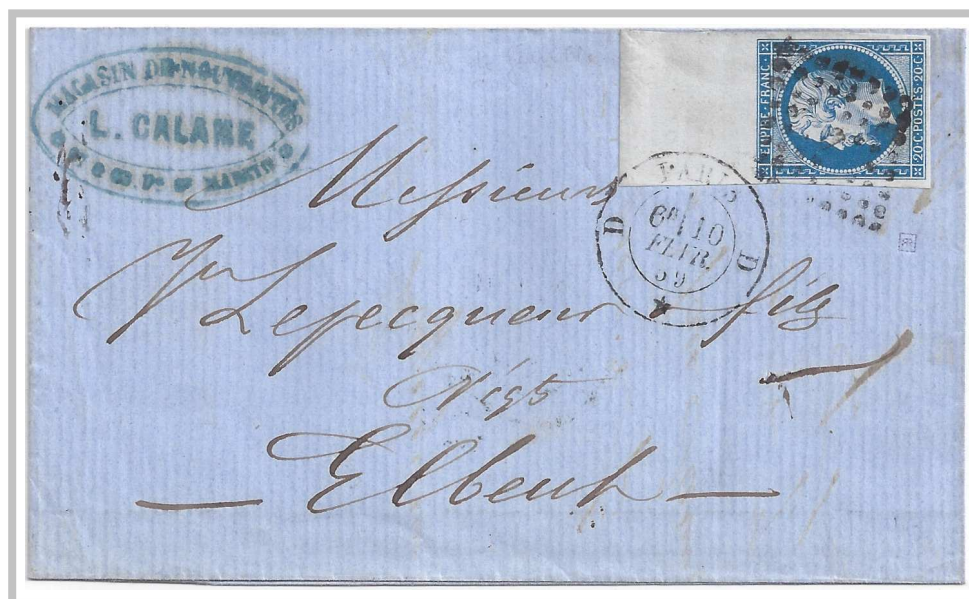 MAGASIN DE NOUVEAUTÉS
L. CALAME
EMPIRE · FRANC ·
20·C·POSTES·20·C·
PARIS
D D
6E 10
FEVR.
59
Messieurs
Lefecqueur & fils
Négts
— Elbeuf —